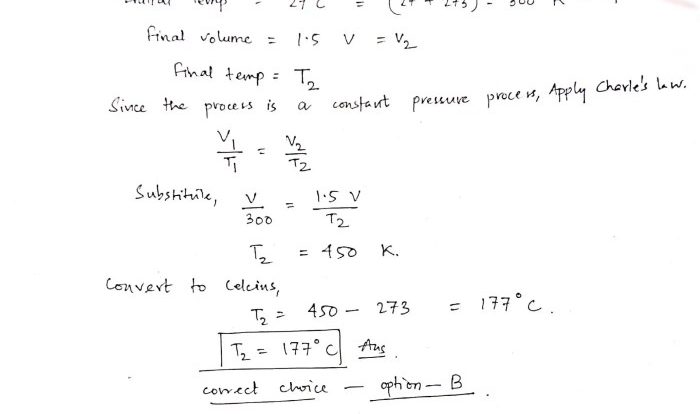 Initial temp = 27°C = (27 + 273) = 300 K
final volume = 1.5 V = V₂
final temp = T₂
Since the process is a constant pressure process, Apply Charle's law.
V₁/T₁ = V₂/T₂
Substitute, V/300 = 1.5 V/T₂
T₂ = 450 K.
Convert to Celcius,
T₂ = 450 – 273 = 177°C.
T₂ = 177°C Ans.
correct choice — option – B.